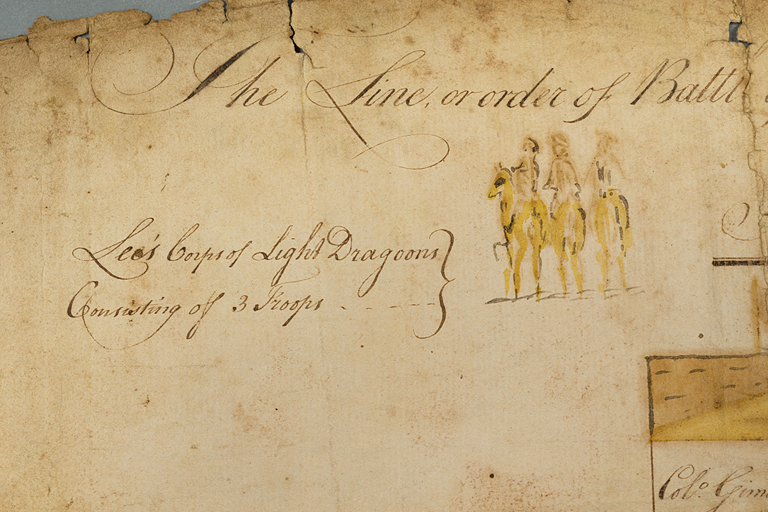 The Line, or order of Battl
Lee's Corps of Light Dragoons
Consisting off 3 Troops
Colo. Gim